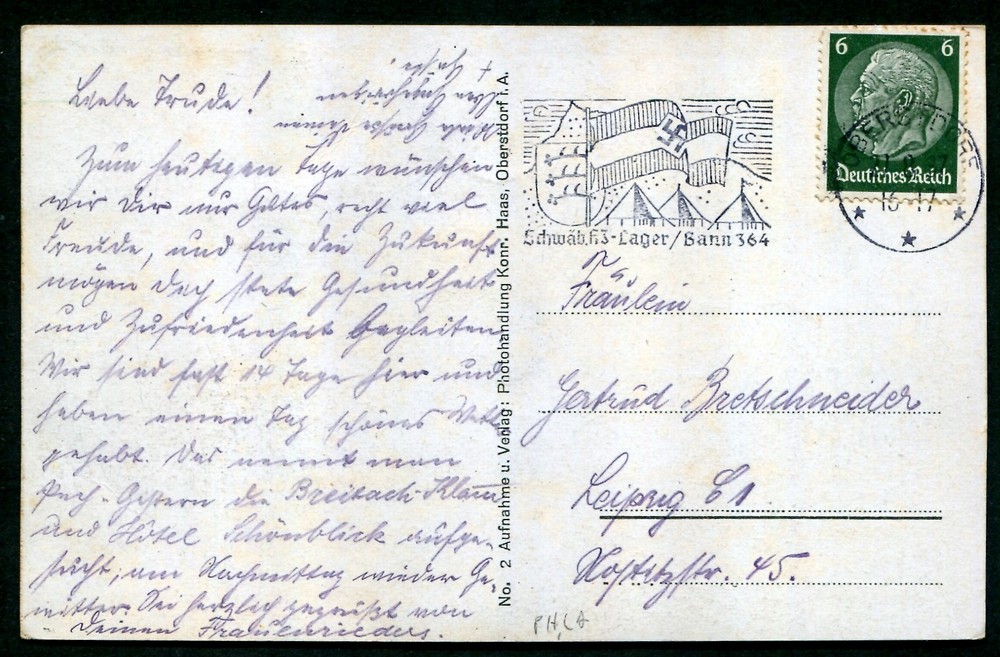 Liebe Trude!
Zum heutigen Tage wünschen
wir Dir nur Gutes, recht viel
Freude, und für die Zukunft
mögen Dich stete Gesundheit
und Zufriedenheit begleiten
Wir sind fast 14 Tage hier und
haben einen Tag schönes Wett
gehabt. Das nennt man
Pech. Gestern die Breitach-Klamm
und Hotel Schönblick aufge-
sucht, am Nachmittag wieder Ge-
witter. Sei herzlich gegrüßt von
Deinen Frauenrieders.
No. 2 Aufnahme u. Verlag: Photohandlung Konr. Haas, Oberstdorf i. A.
Schwäb. HJ-Lager/Bann 364
6 6
Deutsches Reich
OBERSTDORF
16-17
Fräulein
Gertrud Bretschneider
Leipzig C1
Nostitzstr. 45.